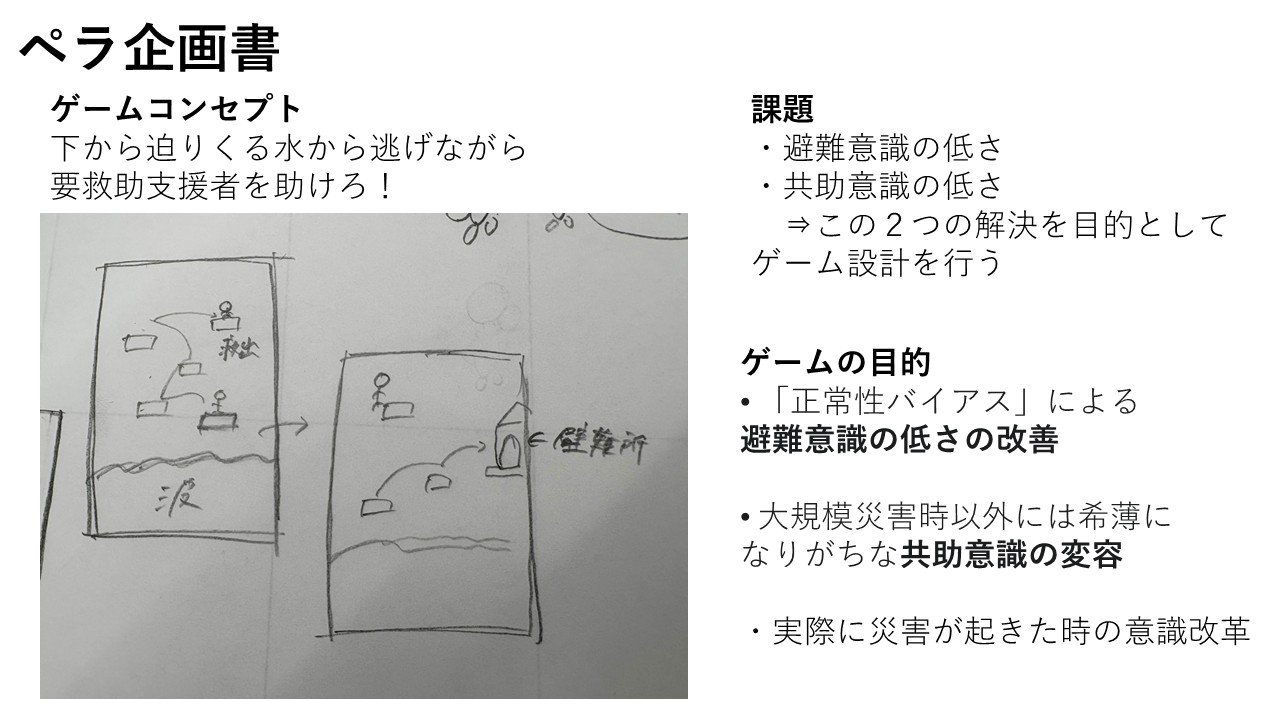 ペラ企画書
ゲームコンセプト
下から迫りくる水から逃げながら
要救助支援者を助けろ！
救出
波
避難所
課題
・避難意識の低さ
・共助意識の低さ
⇒この２つの解決を目的として
ゲーム設計を行う
ゲームの目的
•「正常性バイアス」による
避難意識の低さの改善
•大規模災害時以外には希薄に
なりがちな共助意識の変容
・実際に災害が起きた時の意識改革